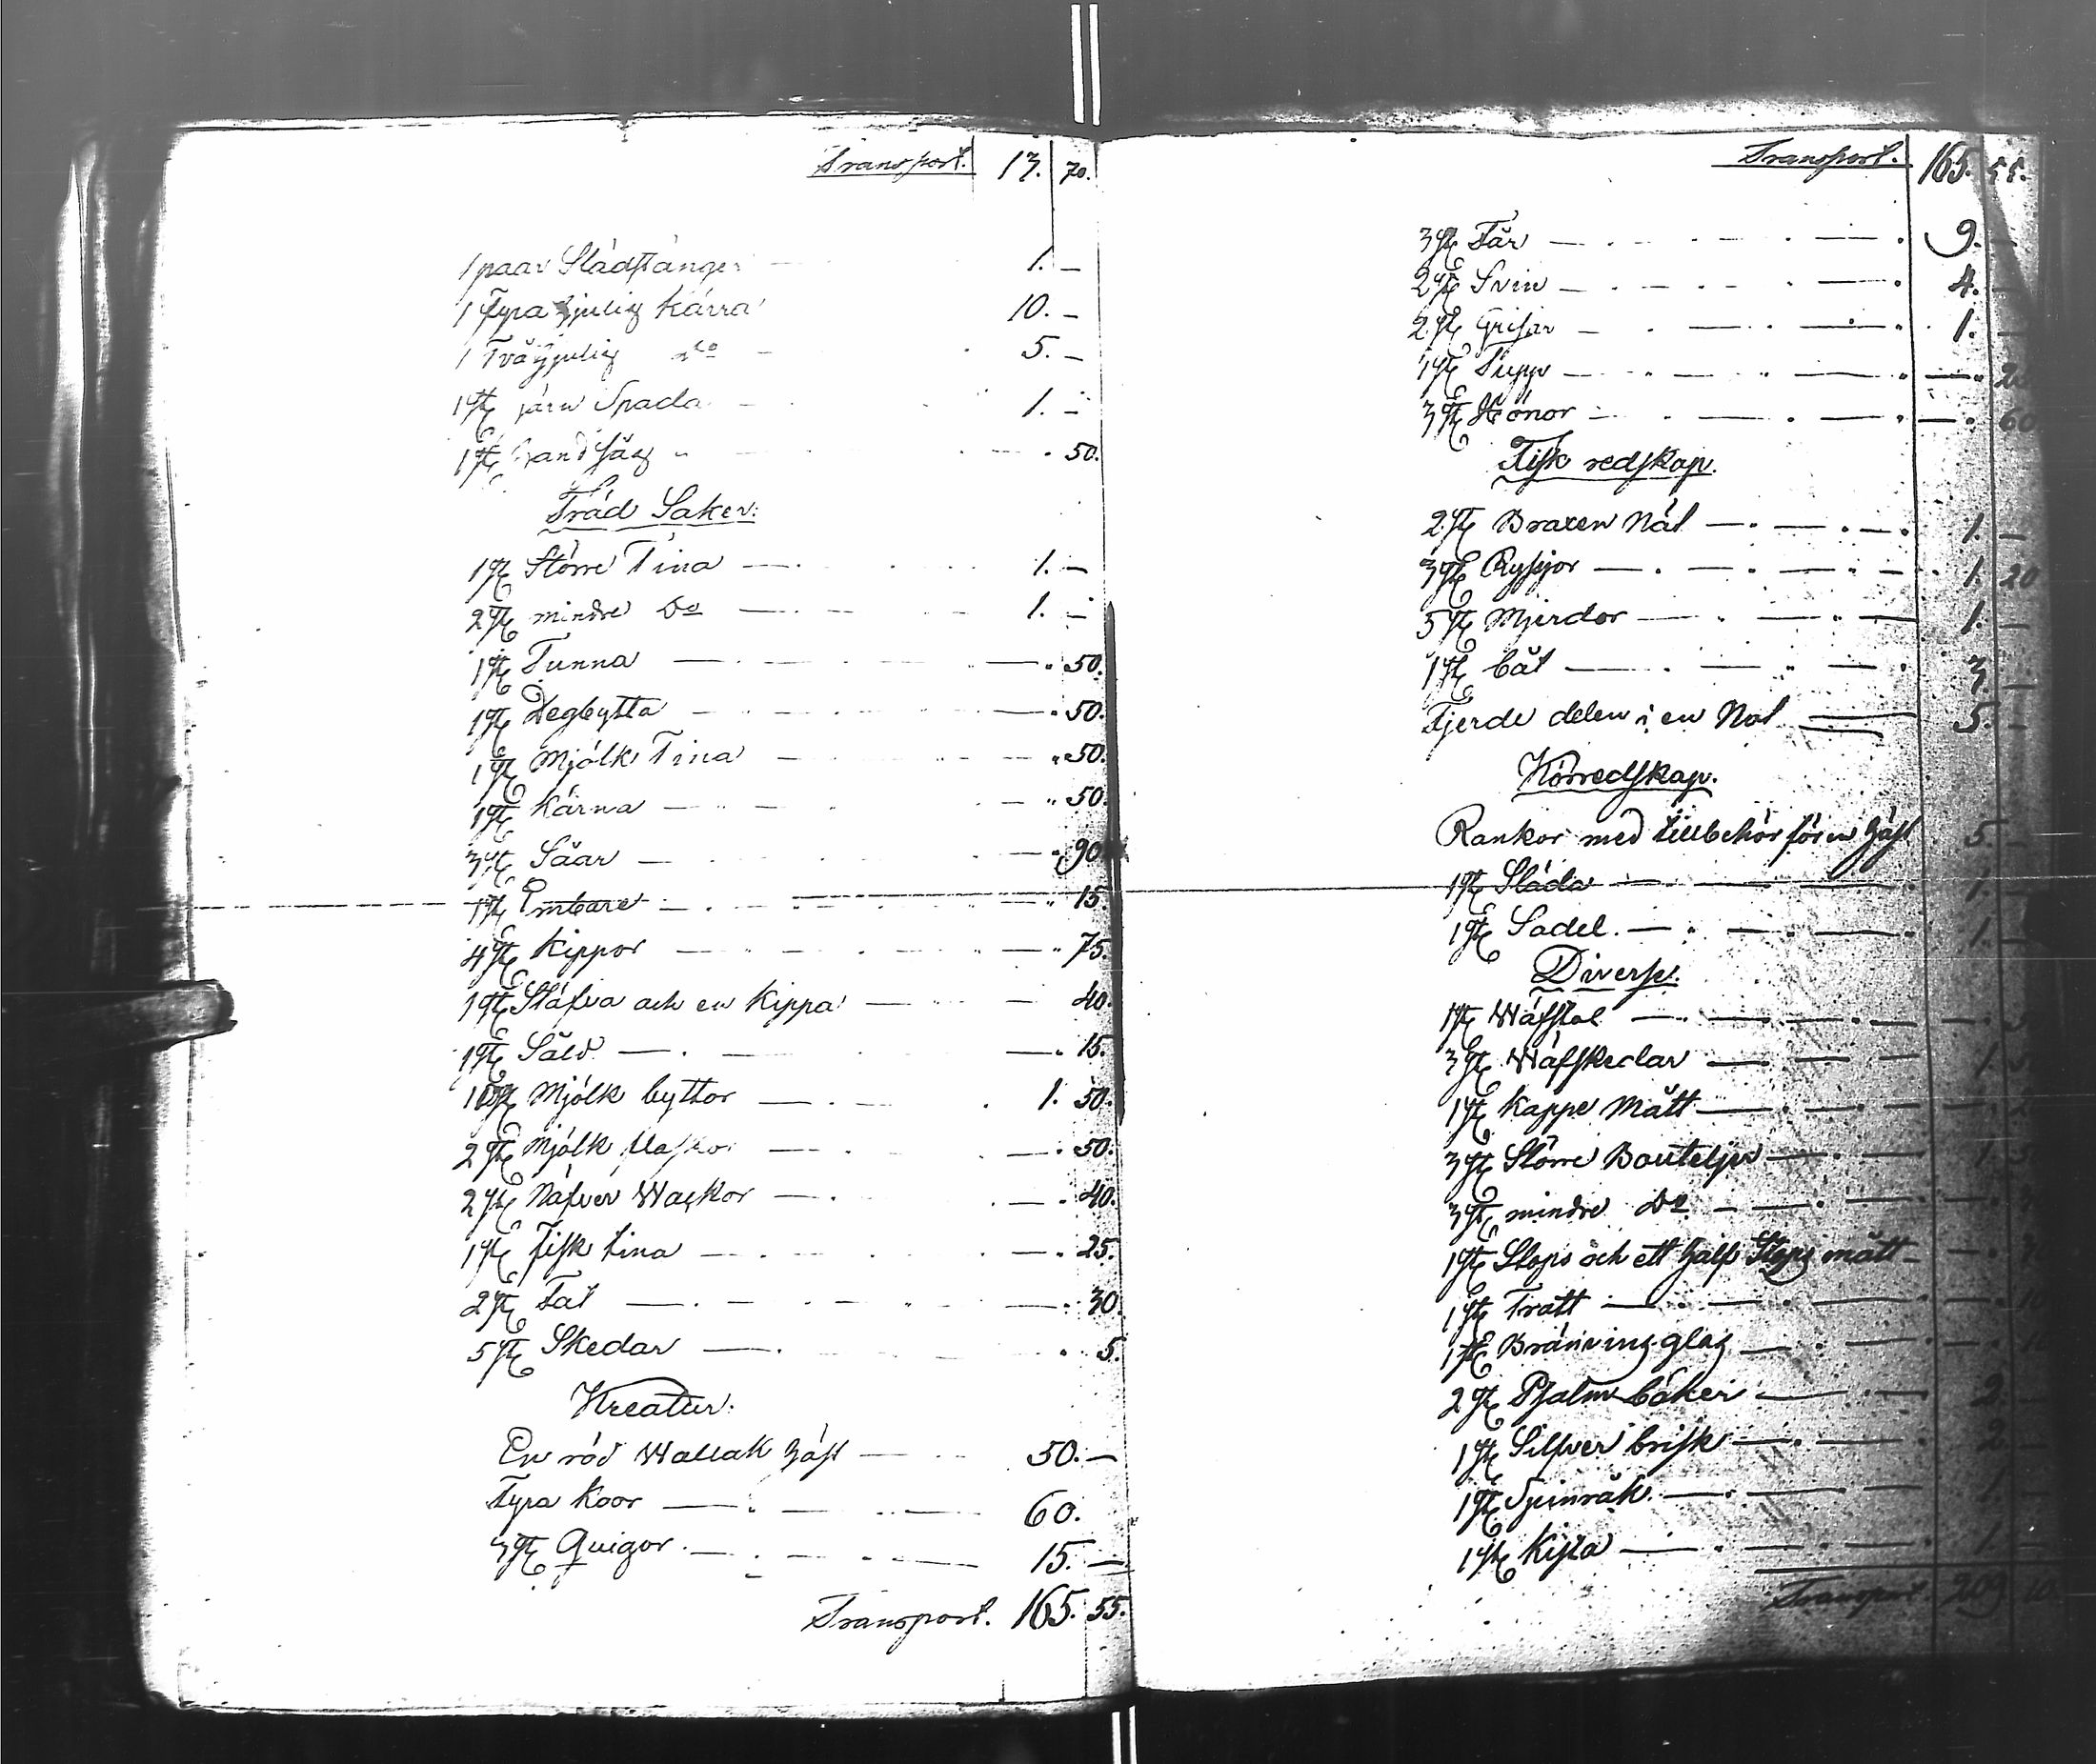 Transport. 13. 70.
1 paar Slädstänger 1. —
1 Fyra hjulig kärra 10. —
1 Två hjulig do 5. —
1 st järn Spada 1. —
1 st handsåg 50.
Träd Saker.
1 st Större Tina 1. —
2 st mindre Do 1. —
1 st Tunna 50.
1 st Degbytta 50.
1 st Mjölk Tina 50.
1 st kärna 50.
3 st Såar 90
1 st Embare 15.
4 st kippor 75.
1 st Stäfva och en kippa 40.
1 st Såld 15.
10 st Mjölk byttor 1. 50.
2 st Mjölk flaskor 50.
2 st Näfver Wackor 40.
1 st fisk tina 25.
2 st Fat 30.
5 st Skedar 5.
Kreatur.
En röd Wallak häst 50. —
Fyra koor 60.
3 st Quigor 15. —
Transport. 165. 55.
Transport. 165. 55.
3 st Får 9. —
2 st Svin 4. —
2 st Grisar 1. —
1 st Tupp — 20
3 st Hönor — 60
Fisk redskap.
2 st Braxen Nät 1. —
3 st Rysjor 1. 20
5 st Mjerdor 1. —
1 st båt 3. —
Fjerde delen i en Not 5. —
Körredskap.
Rankor med tillbehör för en häst 5. —
1 st Släda 1. —
1 st Sadel. 1. —
Diverse.
1 st Wäfstol — 50
3 st Wäfskedar 1.
1 st kappe Mått —
3 st Större Bouteljer 1.
3 st mindre Do
1 st Stops och ett half Stops mått —
1 st Tratt — 10
1 st Bränvins glas — 10
2 st Psalm böker 2. —
1 st Silfver brisk
1 st Spinråk 1. —
1 st kista 1. —
Transport. 209 10